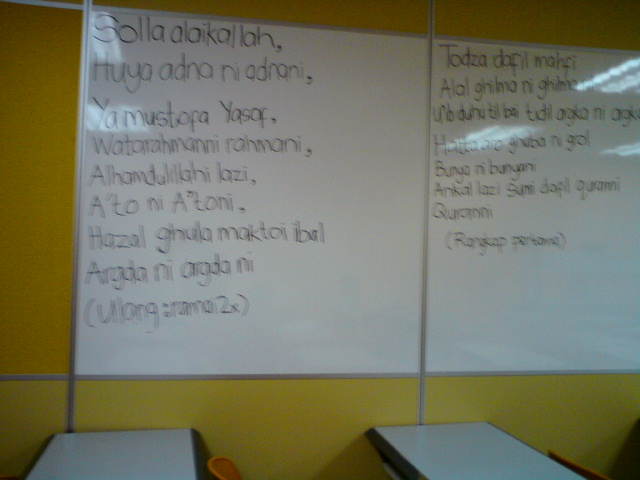 Solla alaikallah,
Huya adna ni adnani,
Ya mustofa Yasof,
Watarahmanni rahmani,
Alhamdulillahi lazi,
A'to ni A'toni,
Hazal ghula maktoi ibal
Argda ni argda ni
(Ulang : ramai 2x)
Todza dafil mahfi
Alal ghilma ni ghilma
duhu til bai tidil argka ni
ghuba ni grol
Bunya ni bunyani
Ankal lazi sumi dapil quranni
Quranni
(Rangkap pertama)